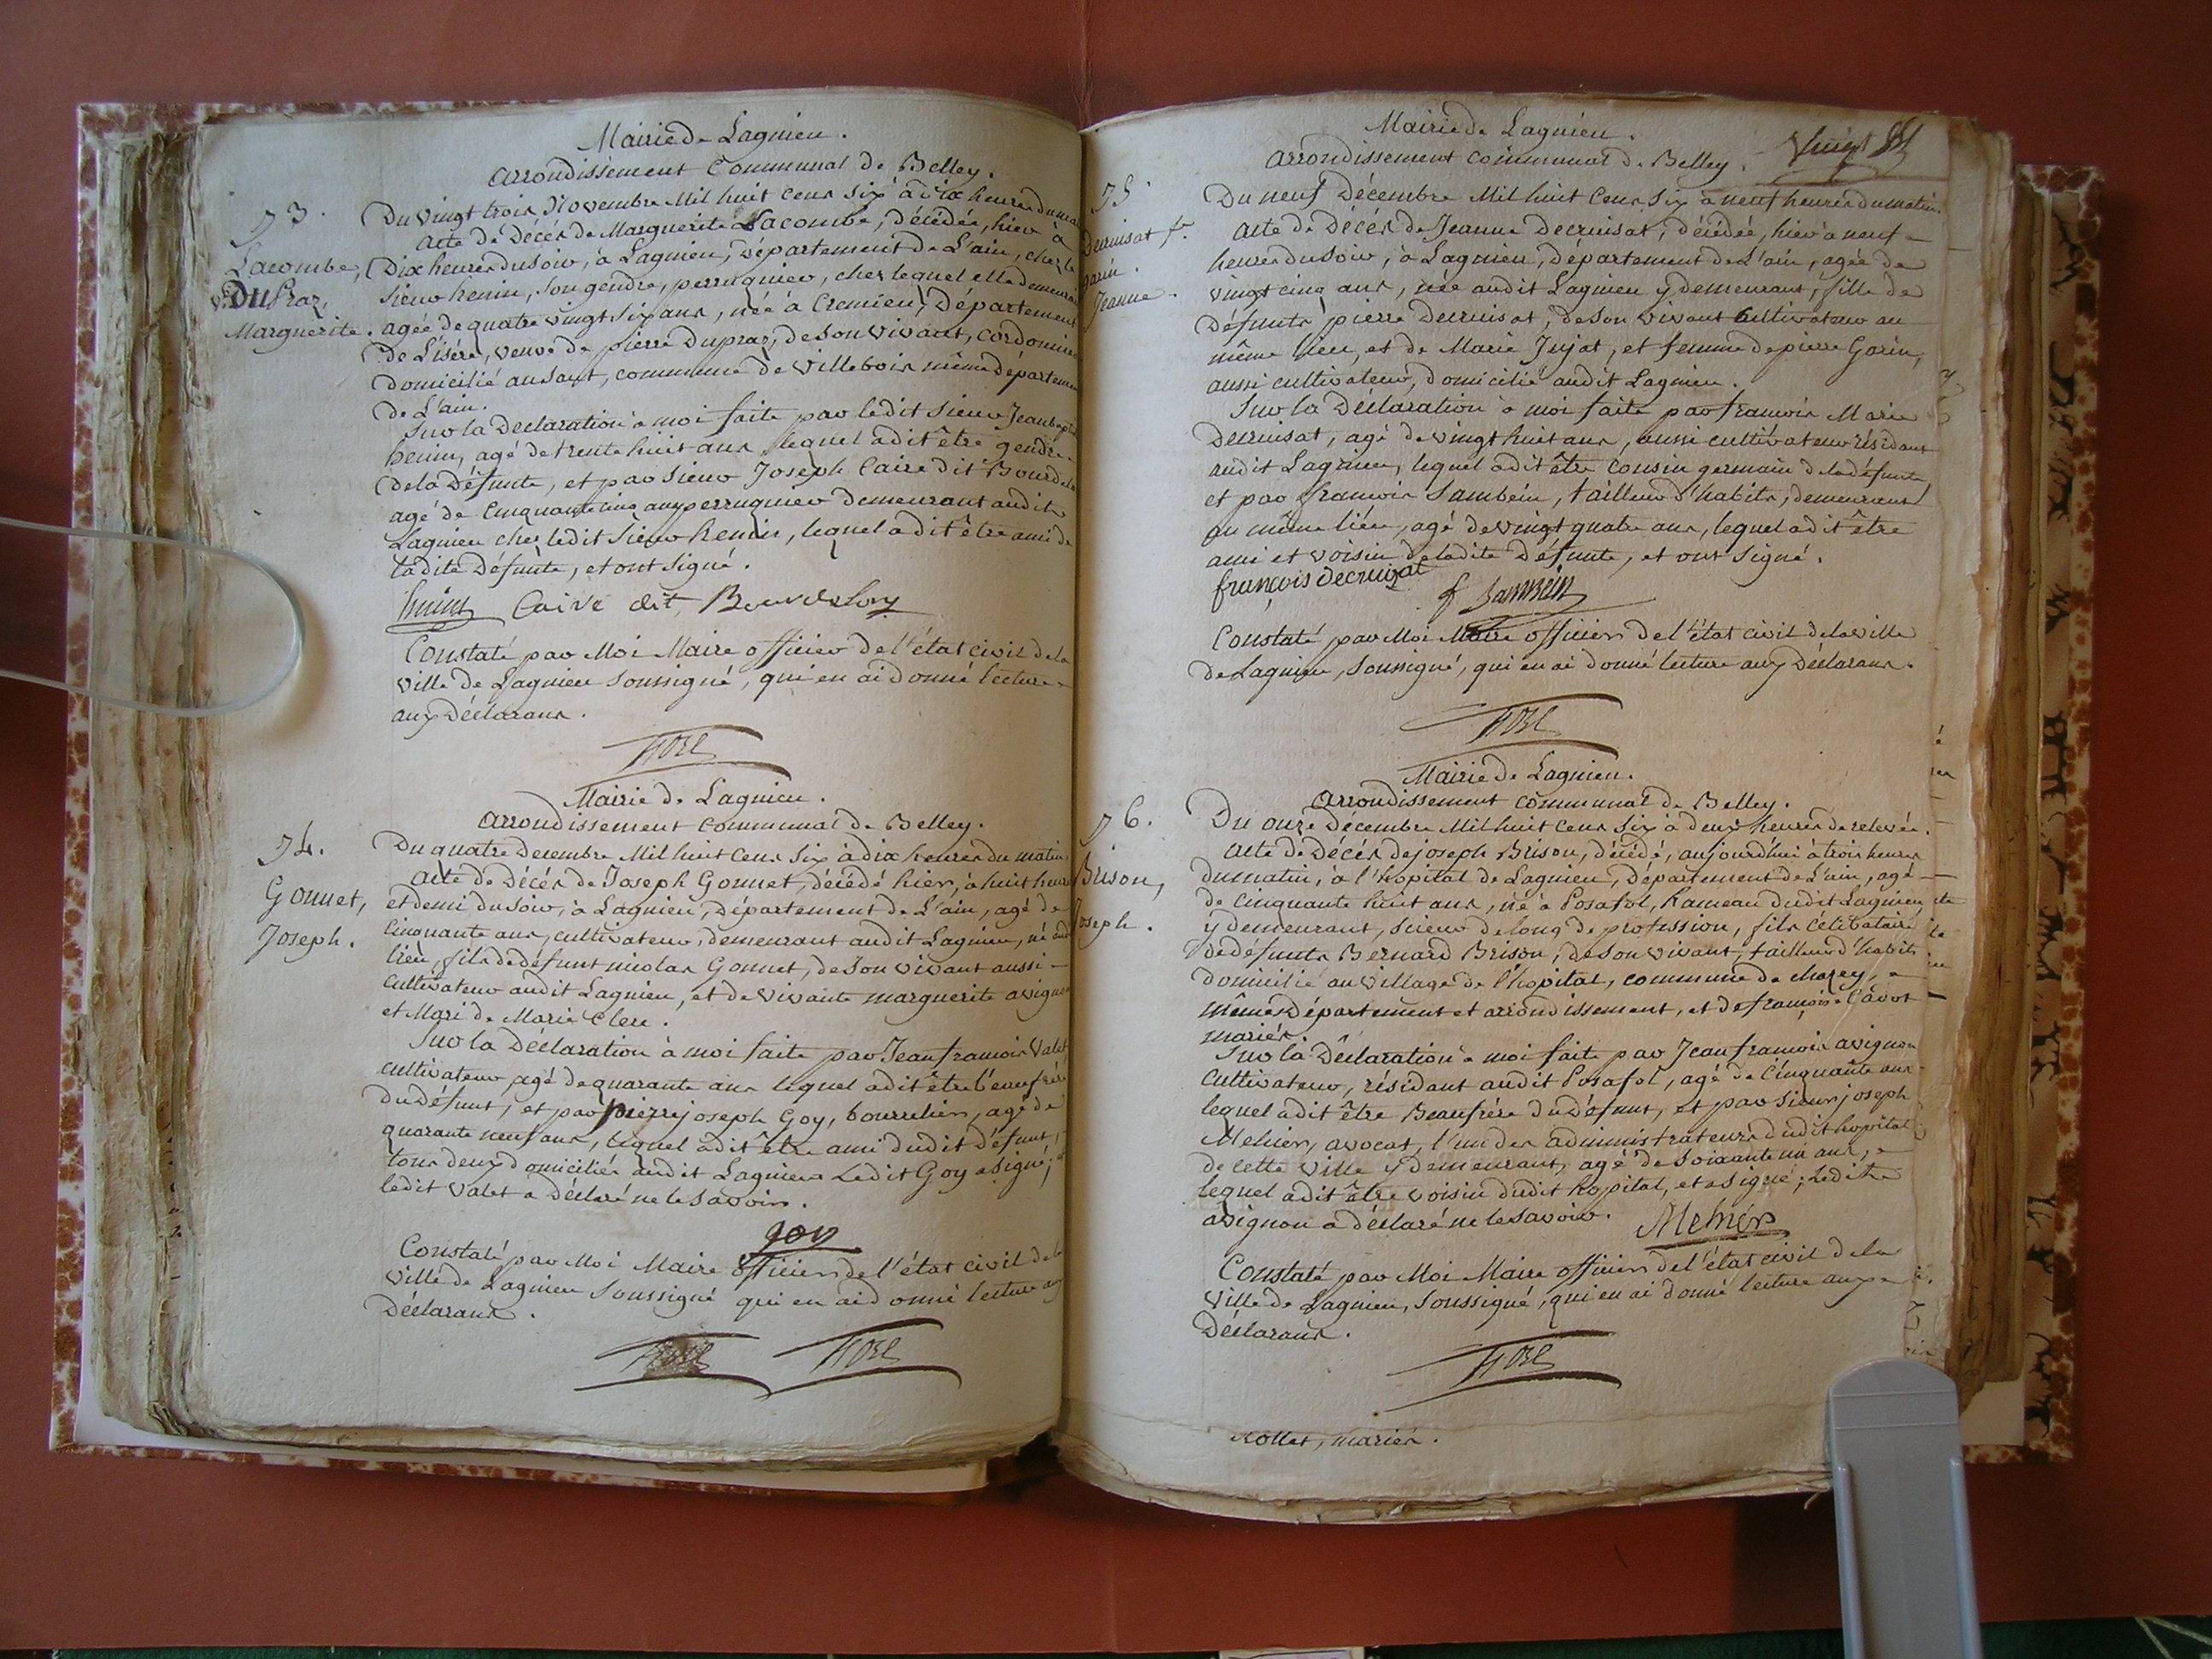 Mairie de Lagnieu.
arrondissement Communal de Belley.
73.
Lacombe,
ve Du Praz,
Marguerite.
Du vingt trois Novembre Mil huit Cens Six à dix heures du
acte de Décès de Marguerite Lacombe, décédée, hier à
Dix heures du soir, à Lagnieu, Département de L'ain, chez le
Sieur henin, son gendre, perruquier, chez lequel elle demeurait
agée de quatre vingt Six ans, née à Cremieu, Département
de L'isére, veuve de pierre Dupraz, de son vivant, cordonnier
domicilié au Saut, commune de Villebois même département
de L'ain.
Sur la Declaration à moi faite par ledit Sieur Jean baptiste
henin, agé de trente huit ans, lequel a dit être gendre
de la Défunte, et par Sieur Joseph Caire dit Bourdelon
agé de Cinquante cinq ans perruquier demeurant audit
Lagnieu chez ledit Sieur henin, lequel a dit être ami de
ladite Défunte, et ont Signé.
henin Caire dit Bourdelon
Constaté par Moi Maire officier de l'état civil de la
ville de Lagnieu Soussigné, qui en ai donné lecture
aux Déclarans.
Mairie de Lagnieu.
arrondissement communal de Belley.
74.
Gonnet,
Joseph.
Du quatre decembre Mil huit Cens Six à dix heures du matin
acte de Décès de Joseph Gonnet, décédé hier, à huit heures
et demi du soir, à Lagnieu, Département de L'ain, agé de
Cinquante ans, cultivateur, demeurant audit Lagnieu, né audit
lieu, fils de défunt nicolas Gonnet, de son vivant aussi
cultivateur audit Lagnieu, et de vivante marguerite avignon
et Mari de Marie Clerc.
Sur la Déclaration à moi faite par Jean francois Valet
cultivateur agé de quarante ans lequel a dit être beaufrére
du Défunt, et par pierre joseph Goy, bourrelier, agé de
quarante neuf ans, lequel a dit être ami dudit défunt,
tous deux domiciliés audit Lagnieu Ledit Goy a Signé;
ledit Valet a déclaré ne le Savoir.
goy
Constaté par Moi Maire officier de l'état civil de la
ville de Lagnieu Soussigné qui en ai donné lecture aux
Déclarans.
Mairie de Lagnieu.
arrondissement communal de Belley.
Vingt
75.
Decruisat fe.
gorin.
Jeanne.
Du neuf Décembre Mil huit Cens Six à neuf heures du matin.
acte de Décès de Jeanne Decruisat, décédée, hier à neuf
heures du soir, à Lagnieu, département de L'ain, agée de
vingt cinq ans, née audit Lagnieu y demeurant, fille de
Défunts pierre Decruisat, de son vivant cultivateur au
même lieu, et de Marie Jujat, et femme de pierre Gorin,
aussi cultivateur, domicilié audit Lagnieu.
Sur la Déclaration à moi faite par francois Marie
Decruisat, agé de vingt huit ans, aussi cultivateur résidant
audit Lagnieu, lequel a dit être Cousin germain de la défunte,
et par francois Sambein, tailleur d'habits, demeurant
au même lieu, agé de vingt quatre ans, lequel a dit être
ami et voisin de ladite Défunte, et ont Signé.
françois decruizat
f Sambein
Constaté par Moi Maire officier de l'état civil de la ville
de Lagnieu, Soussigné, qui en ai donné lecture aux Déclarans.
Mairie de Lagnieu.
arrondissement communal de Belley.
76.
Brison,
Joseph.
Du onze Décembre Mil huit Cens Six à deux heures de relevée.
acte de Décès de joseph Brison, décédé, aujourd'hui à trois heures
du matin, à l'hôpital de Lagnieu, Département de L'ain, agé
de cinquante huit ans, né à Posafol, hameau dudit Lagnieu,
y demeurant, Scieur de long de profession, fils célibataire
de défunts Bernard Brison, de son vivant, tailleur d'habits
domicilié au village de l'hopital, commune de chazey,
mêmes département et arrondissement, et de françoise Cavot
mariés.
Sur la Déclaration à moi faite par Jean francois avignon
cultivateur, résidant audit Posafol, agé de Cinquante ans
lequel a dit être Beaufrére du Défunt, et par Sieur joseph
Mehier, avocat, l'un des administrateurs dudit hopital
de cette ville y demeurant, agé de Soixante un ans,
lequel a dit être voisin dudit hopital, et a Signé; Ledit
avignon a déclaré ne le savoir.
Mehier
Constaté par Moi Maire officier de l'état civil de la
ville de Lagnieu, Soussigné, qui en ai donné lecture aux
Déclarans.
mariés.